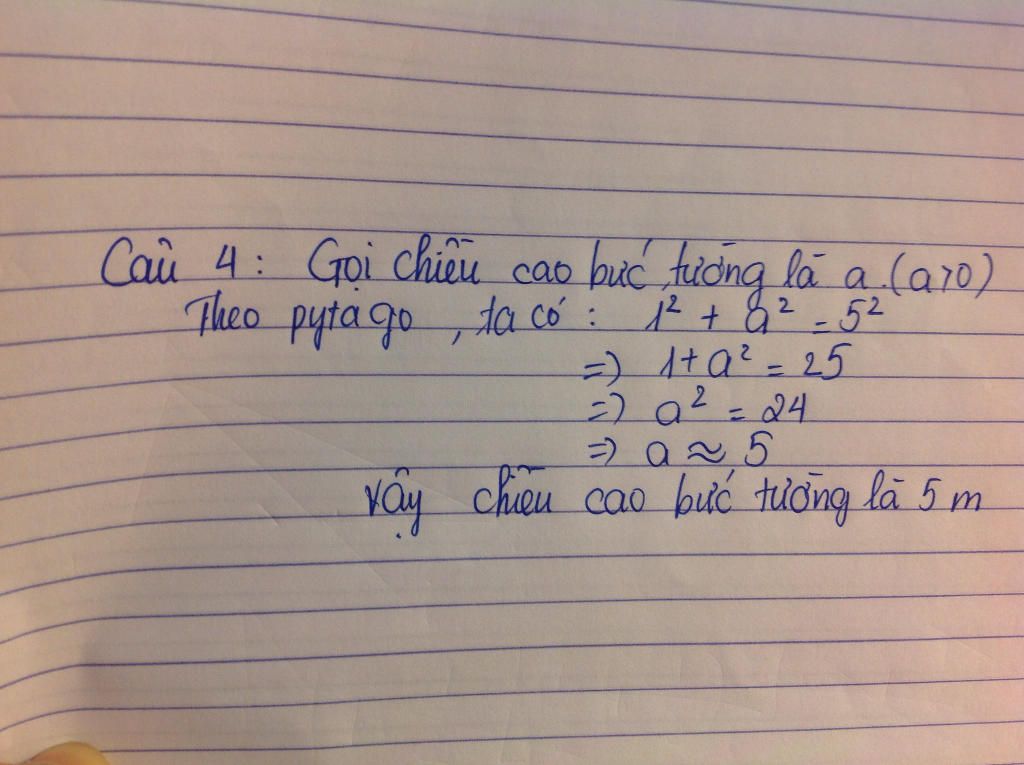 Câu 4: Gọi chiều cao bức tường là a. (a>0)
Theo pytago, ta có: 1² + a² = 5²
=> 1+a² = 25
=> a² = 24
=> a ≈ 5
Vậy chiều cao bức tường là 5 m